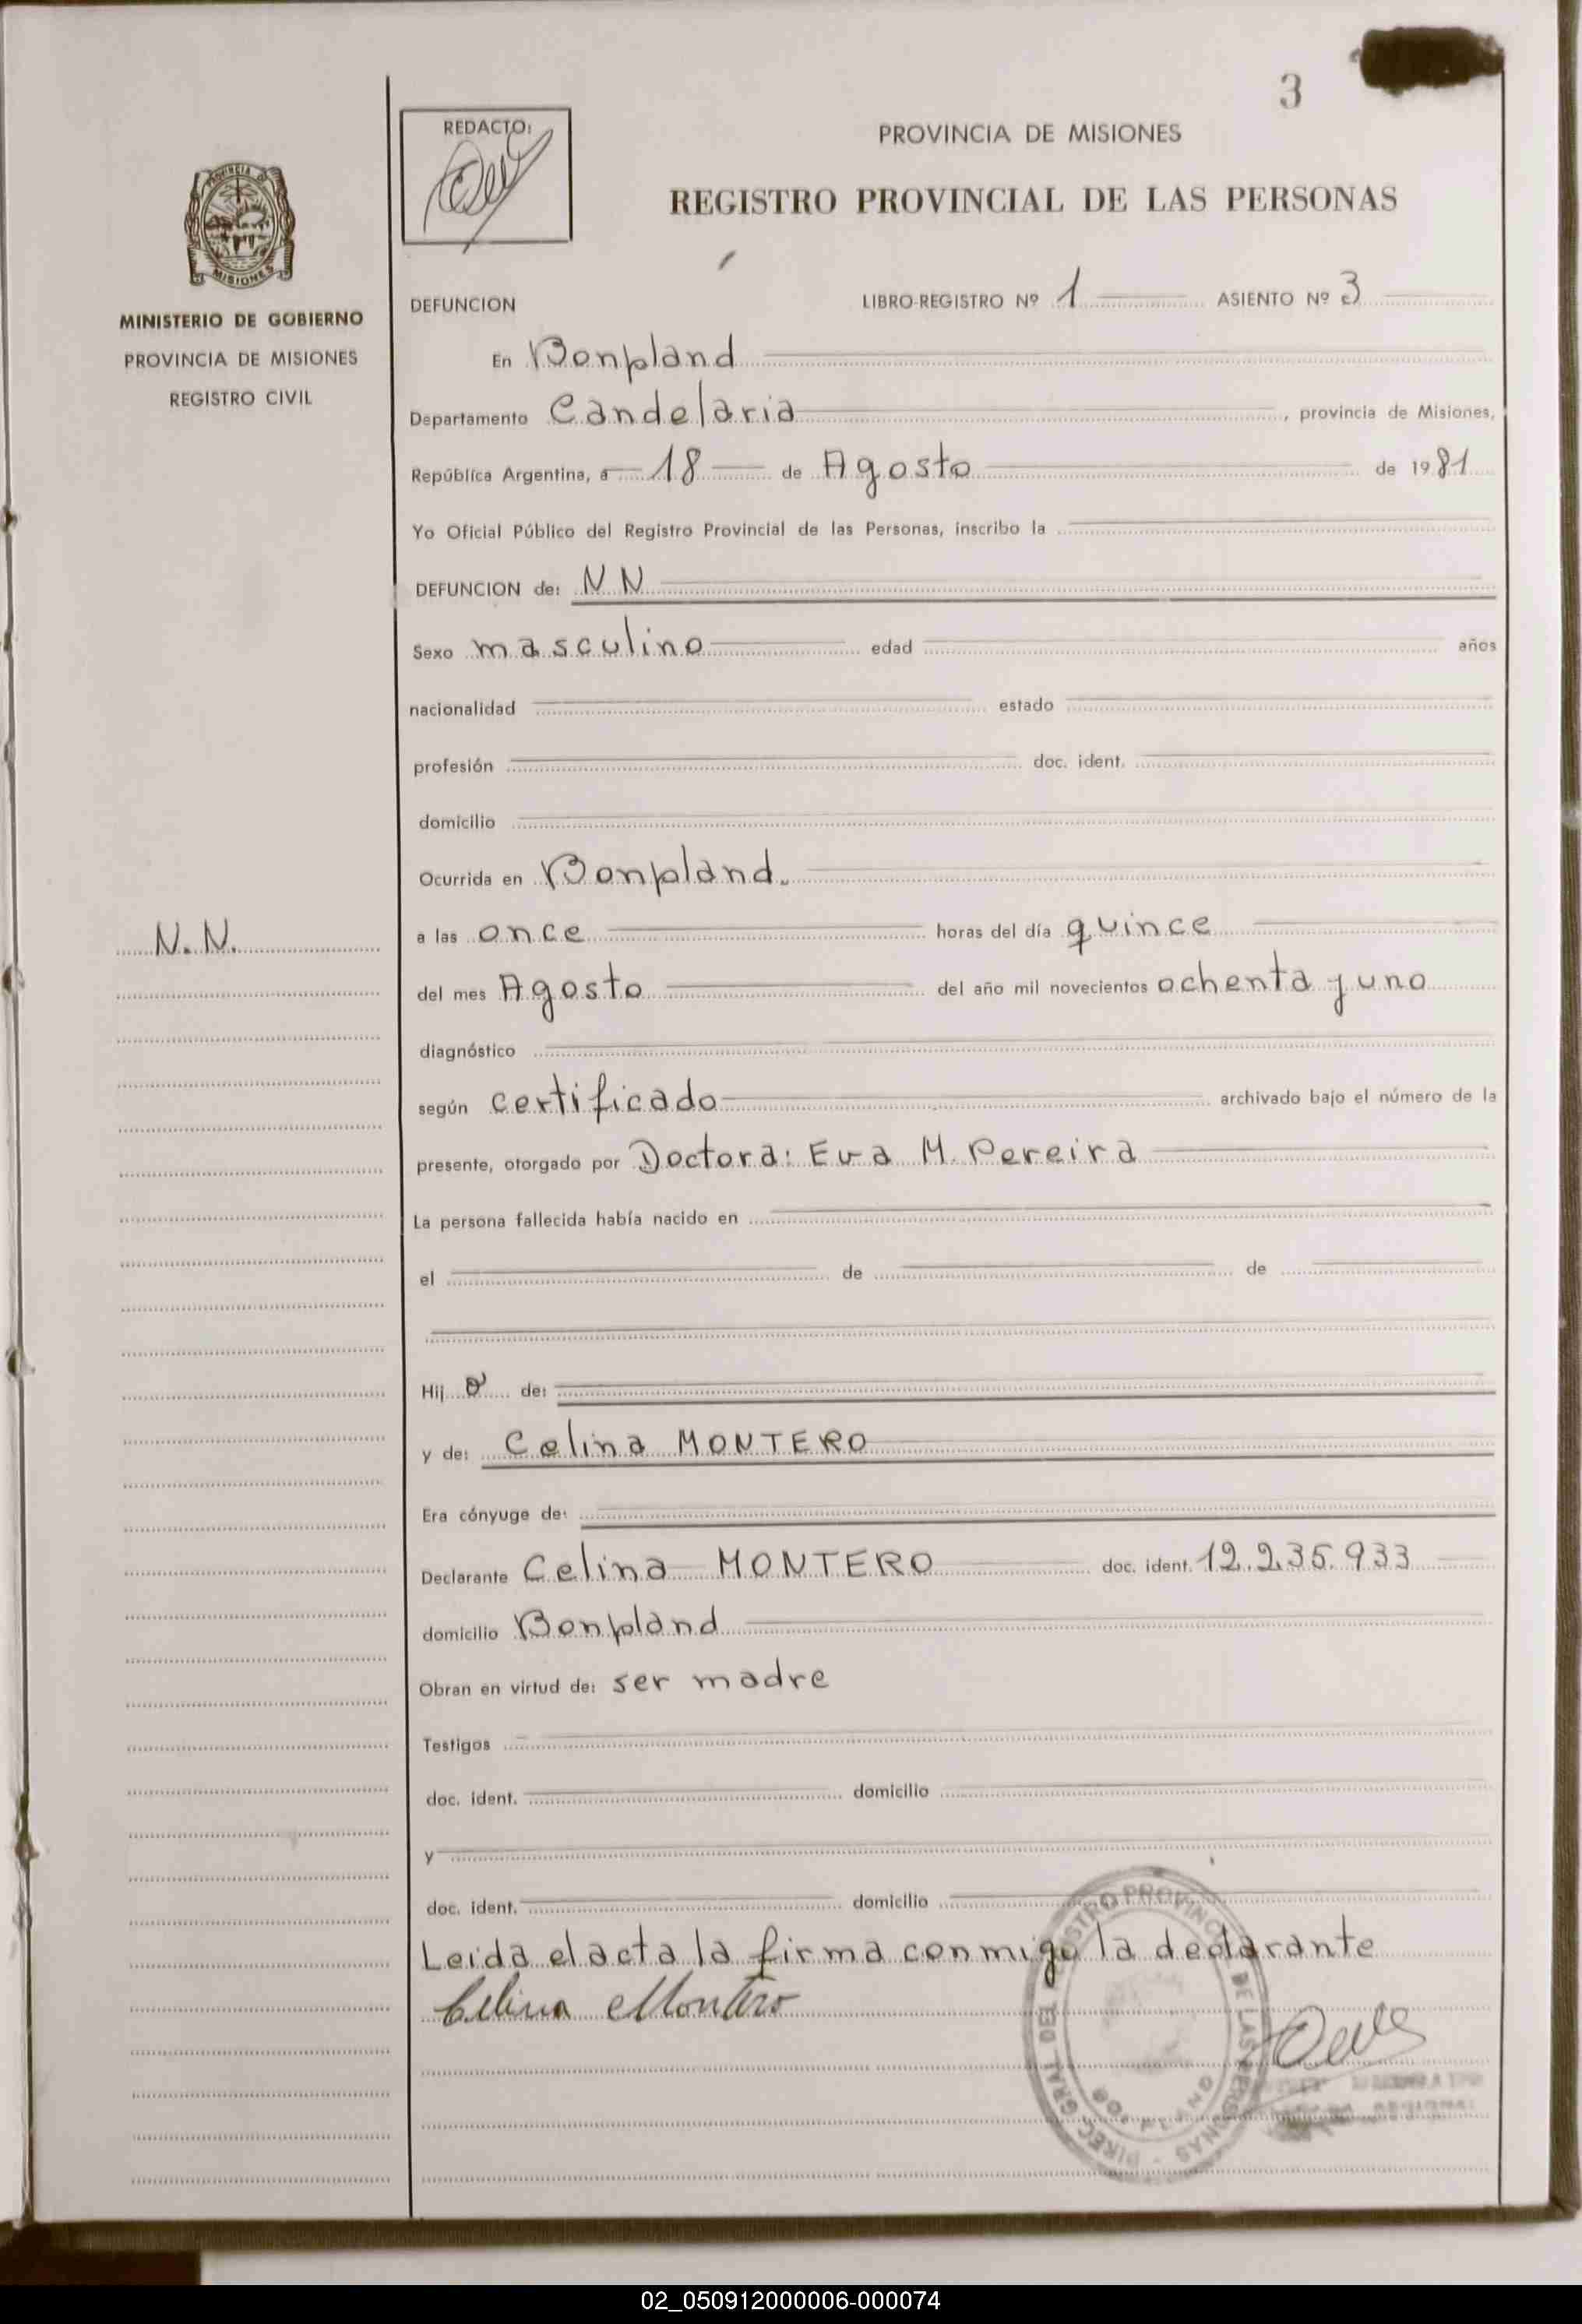 3
REDACTO:
PROVINCIA DE MISIONES
REGISTRO PROVINCIAL DE LAS PERSONAS
PROVINCIA DE
MISIONES
MINISTERIO DE GOBIERNO
PROVINCIA DE MISIONES
REGISTRO CIVIL
DEFUNCION LIBRO-REGISTRO Nº 1 ASIENTO Nº 3
En Bonpland
Departamento Candelaria, provincia de Misiones,
República Argentina, a 18 de Agosto de 1981
Yo Oficial Público del Registro Provincial de las Personas, inscribo la
DEFUNCION de: N N
Sexo masculino edad años
nacionalidad estado
profesión doc. ident.
domicilio
Ocurrida en Bonpland.
N. N.
a las once horas del día quince
del mes Agosto del año mil novecientos ochenta y uno
diagnóstico
según certificado archivado bajo el número de la
presente, otorgado por Doctora: Eva M. Pereira
La persona fallecida había nacido en
el de de
Hij o de:
y de: Celina MONTERO
Era cónyuge de:
Declarante Celina MONTERO doc. ident. 12.235.933
domicilio Bonpland
Obran en virtud de: ser madre
Testigos
doc. ident. domicilio
y
doc. ident. domicilio
Leida el acta la firma conmigo la declarante
Celina Montero
DIREC. GRAL. DEL REGISTRO PROVINCIAL DE LAS PERSONAS
BONPLAND
02_050912000006-000074